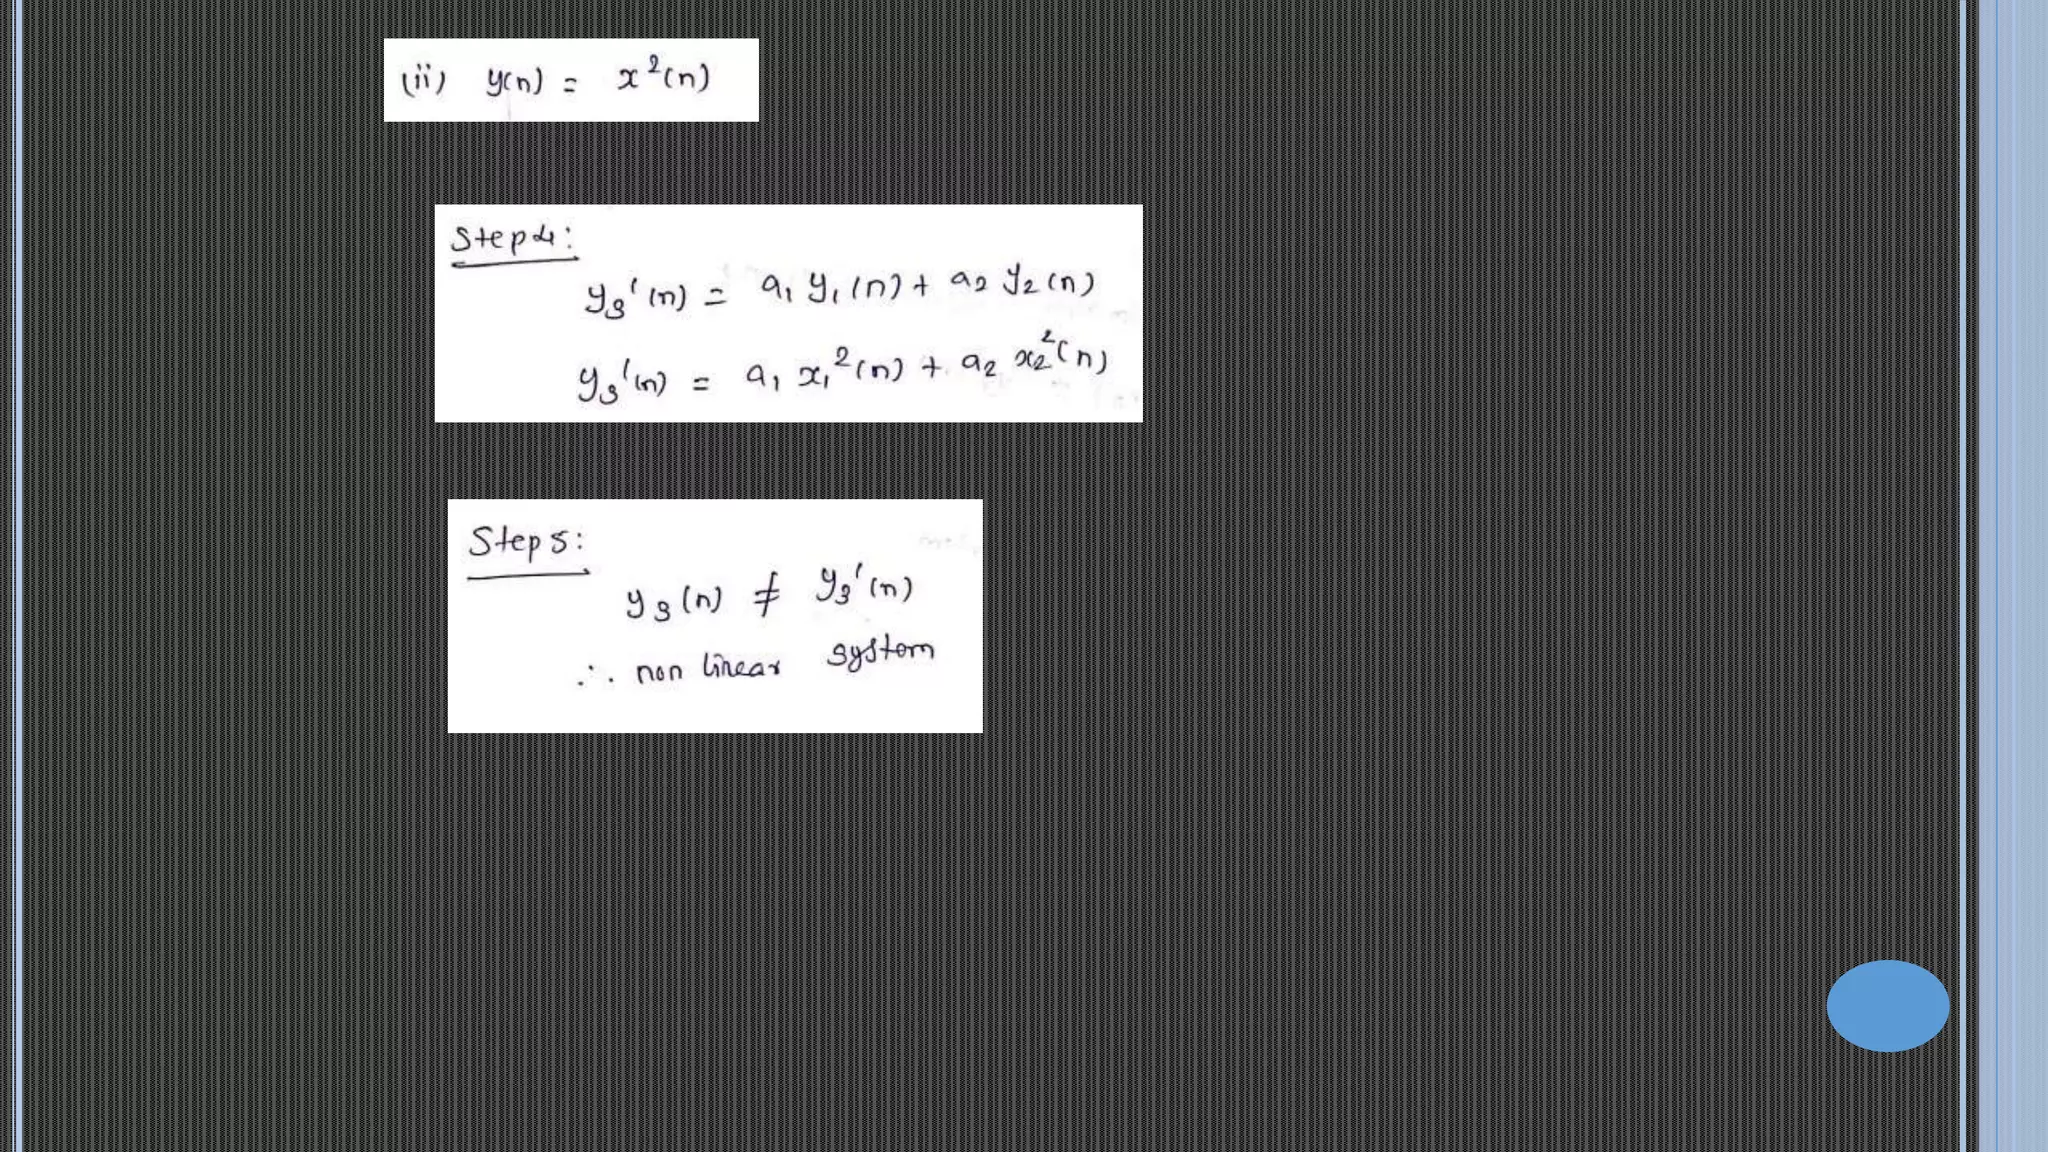 (ii) y(n) = x²(n)
Step 4:
y₃'(n) = a₁ y₁(n) + a₂ y₂(n)
y₃'(n) = a₁ x₁²(n) + a₂ x₂²(n)
Step 5:
y₃(n) ≠ y₃'(n)
∴ non linear system